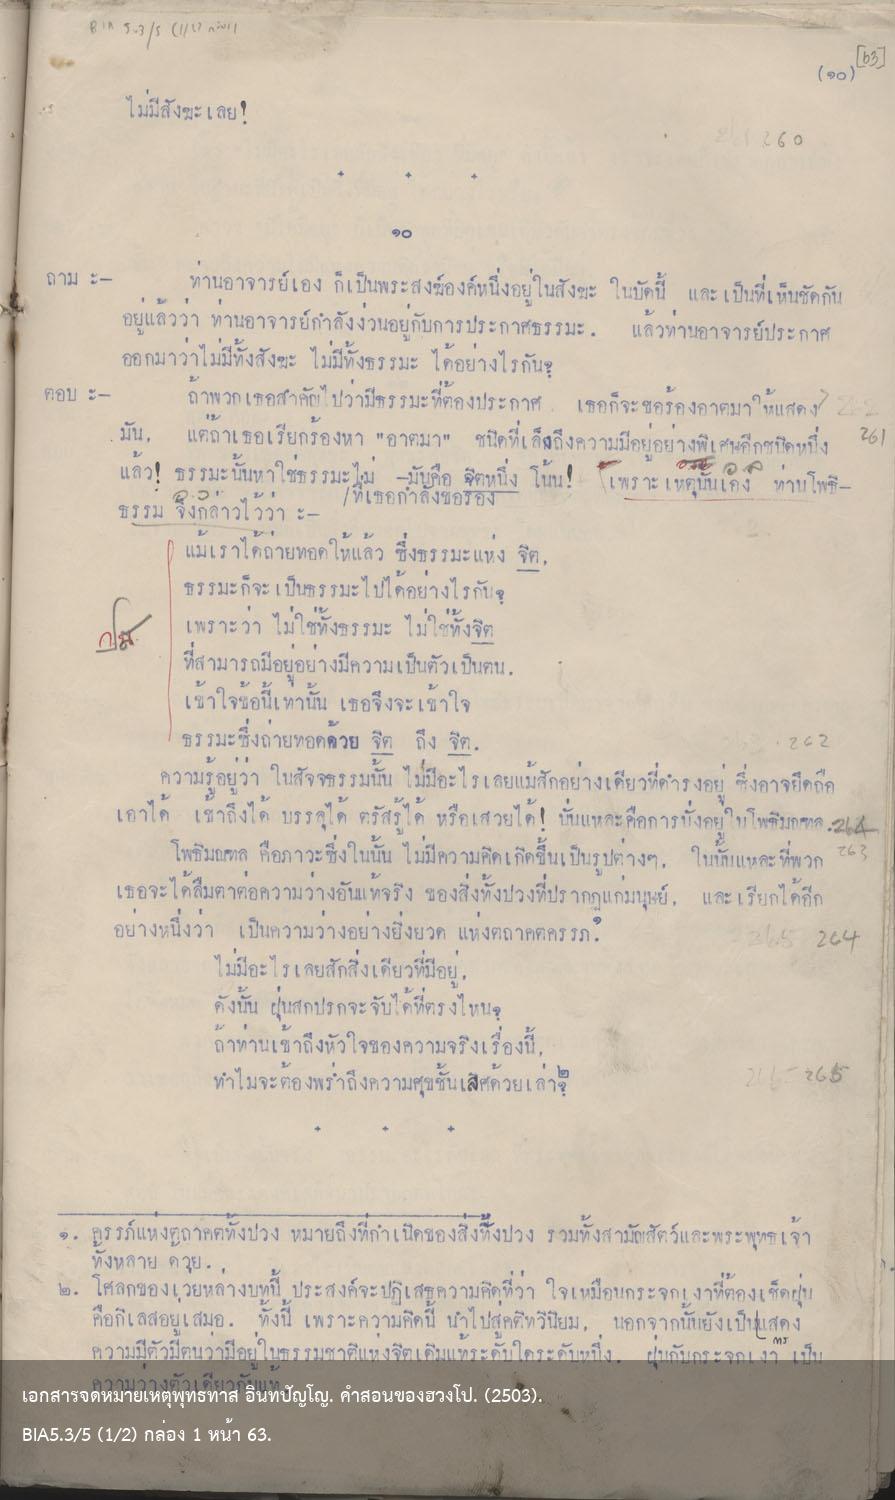 BIA 5.3/5 (1/2) กล่อง 1
[63]
(๑๐)
ไม่มีสังฆะเลย!
260
+ + +
๑๐
ถาม ะ— ท่านอาจารย์เอง ก็เป็นพระสงฆ์องค์หนึ่งอยู่ในสังฆะ ในบัดนี้ และเป็นที่เห็นชัดกัน
อยู่แล้วว่า ท่านอาจารย์กำลังง่วนอยู่กับการประกาศธรรมะ. แล้วท่านอาจารย์ประกาศ
ออกมาว่าไม่มีทั้งสังฆะ ไม่มีทั้งธรรมะ ได้อย่างไรกัน?
ตอบ ะ— ถ้าพวกเธอสำคัญไปว่ามีธรรมะที่ต้องประกาศ เธอก็จะขอร้องอาตมาให้แสดง
มัน, แต่ถ้าเธอเรียกร้องหา "อาตมา" ชนิดที่เล็งถึงความมีอยู่อย่างพิเศษอีกชนิดหนึ่ง 261
แล้ว! ธรรมะนั้นหาใช่ธรรมะไม่ —มันคือ จิตหนึ่ง โน้น! เพราะเหตุนั้นเอง ท่านโพธิ-
/ที่เธอกำลังขอร้อง
ธรรม จึงกล่าวไว้ว่า ะ—
แม้เราได้ถ่ายทอดให้แล้ว ซึ่งธรรมะแห่ง จิต,
ธรรมะก็จะเป็นธรรมะไปได้อย่างไรกัน?
เพราะว่า ไม่ใช่ทั้งธรรมะ ไม่ใช่ทั้งจิต
ที่สามารถมีอยู่อย่างมีความเป็นตัวเป็นตน.
เข้าใจข้อนี้เท่านั้น เธอจึงจะเข้าใจ
ธรรมะซึ่งถ่ายทอดด้วย จิต ถึง จิต.
262
ความรู้อยู่ว่า ในสัจจธรรมนั้น ไม่มีอะไรเลยแม้สักอย่างเดียวที่ดำรงอยู่ ซึ่งอาจยึดถือ
เอาได้ เข้าถึงได้ บรรลุได้ ตรัสรู้ได้ หรือเสวยได้! นั่นแหละคือการนั่งอยู่ในโพธิมณฑล. 264
263
โพธิมณฑล คือภาวะซึ่งในนั้น ไม่มีความคิดเกิดขึ้นเป็นรูปต่างๆ, ในนั้นแหละที่พวก
เธอจะได้ลืมตาต่อความว่างอันแท้จริง ของสิ่งทั้งปวงที่ปรากฏแก่มนุษย์, และเรียกได้อีก
อย่างหนึ่งว่า เป็นความว่างอย่างยิ่งยวด แห่งตถาคตครรภ.๑
265 264
ไม่มีอะไรเลยสักสิ่งเดียวที่มีอยู่,
ดังนั้น ฝุ่นสกปรกจะจับได้ที่ตรงไหน?
ถ้าท่านเข้าถึงหัวใจของความจริงเรื่องนี้,
ทำไมจะต้องพร่ำถึงความศุขชั้นเลิศด้วยเล่า?๒
265 265
+ + +
๑. ครรภ์แห่งตถาคตทั้งปวง หมายถึงที่กำเนิดของสิ่งทั้งปวง รวมทั้งสามัญสัตว์และพระพุทธเจ้า
ทั้งหลาย ด้วย.
๒. โศลกของเว่ยหล่างบทนี้ ประสงค์จะปฏิเสธความคิดที่ว่า ใจเหมือนกระจกเงาที่ต้องเช็ดฝุ่น
คือกิเลสอยู่เสมอ. ทั้งนี้ เพราะความคิดนี้ นำไปสู่คติทวินิยม, นอกจากนั้นยังเป็นแสดง
การ
ความมีตัวมีตนว่ามีอยู่ในธรรมชาติแห่งจิตเดิมแท้ระดับใดระดับหนึ่ง. ฝุ่นกับกระจกเงา เป็น
ความว่างตัวเดียวกันแท้.
เอกสารจดหมายเหตุพุทธทาส อินทปัญโญ. คำสอนของฮวงโป. (2503).
BIA5.3/5 (1/2) กล่อง 1 หน้า 63.